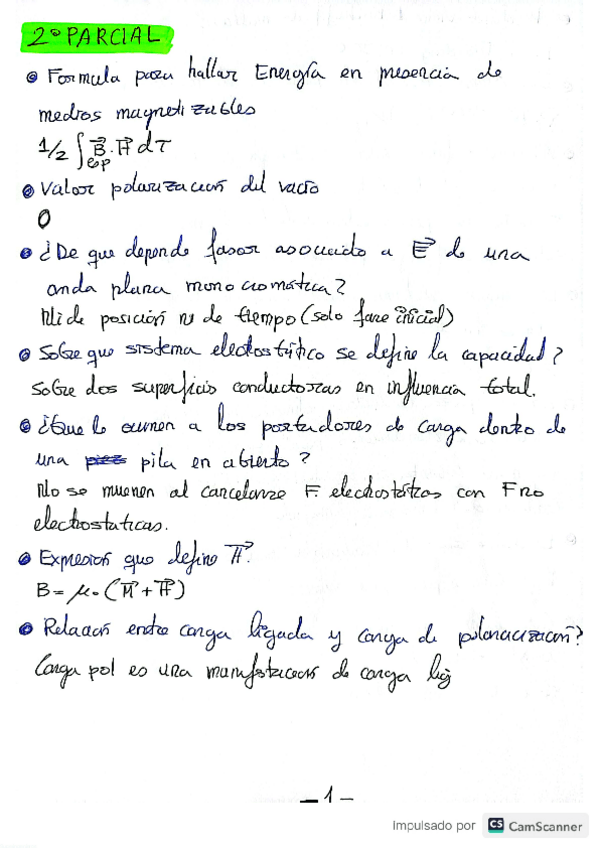 2º PARCIAL
Formula para hallar Energía en presencia de
medios magnetizables
1/2 ∫esp B⃗ . H⃗ dτ
Valor polarizacion del vacío
0
¿De que depende fasor asociado a E⃗ de una
onda plana monocromática?
Ni de posición ni de tiempo (solo fase inicial)
Sobre que sistema electrostático se define la capacidad?
Sobre dos superficies conductoras en influencia total.
¿Que le ocurren a los portadores de carga dentro de
una pila en abierto?
No se mueven al cancelarse F. electrostáticas con F no
electrostaticas.
Expresión que define H⃗.
B = μ₀ (M⃗ + H⃗)
Relación entre carga ligada y carga de polarización?
Carga pol es una manifestacion de carga lig
- 1 -
Impulsado por CS CamScanner